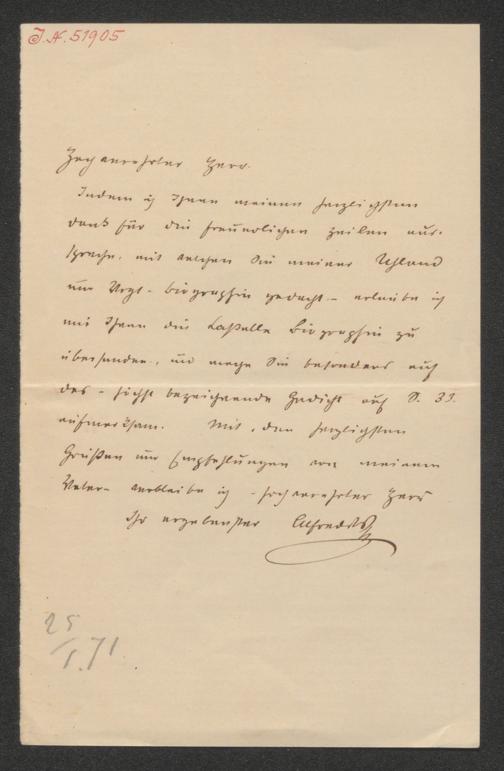 J.N. 51905
Hochverehrter Herr.
Indem ich Ihnen meinen herzlichsten
Dank für die freundlichen Zeilen aus-
spreche, mit welchen Sie meiner Uhland
und Vogt - Biographie gedacht - erlaube ich
mir Ihnen die Laßalle Biographie zu
übersenden, und mache Sie besonders auf
das - höchst bezeichnende Gedicht auf S. 33.
aufmerksam. Mit den herzlichsten
Grüßen und Empfehlungen von meinem
Vater - verbleibe ich - hochverehrter Herr
Ihr ergebenster Alfred
25
/1.71